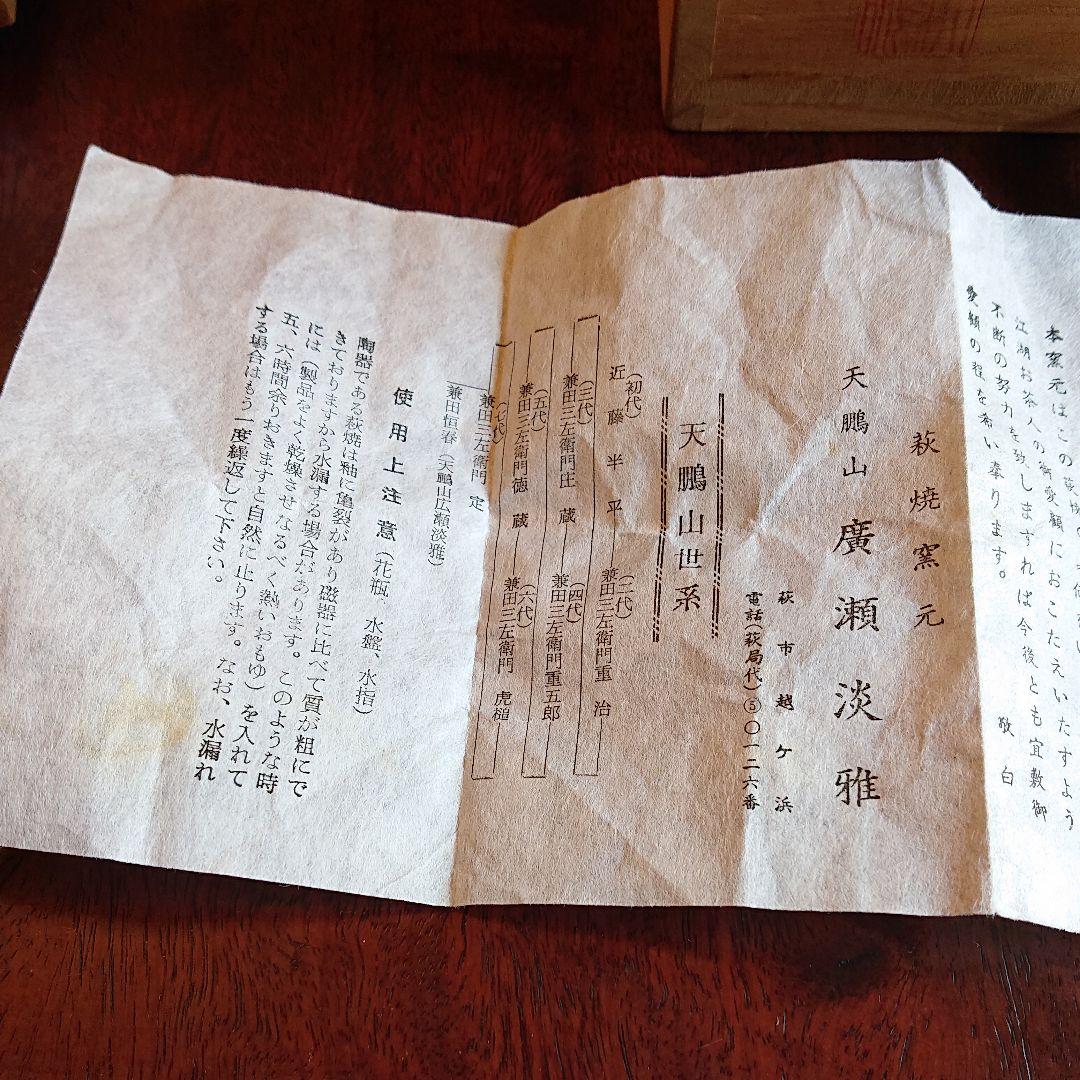 本窯元はこの萩焼
江湖お茶人の御愛顧におこたえいたすよう
不断の努力を致しますれば今後とも宜敷御
愛顧の程を希い奉ります。
敬白
萩焼窯元
天鵬山 廣瀬淡雅
萩市越ケ浜
電話(萩局代)⑤〇一二六番
天鵬山世系
(初代)
近藤半平
(二代)
兼田三左衛門重治
(三代)
兼田三左衛門庄蔵
(四代)
兼田三左衛門重五郎
(五代)
兼田三左衛門徳蔵
(六代)
兼田三左衛門虎槌
(七代)
兼田三左衛門定
兼田恒春(天鵬山広瀬淡雅)
使用上注意(花瓶、水盤、水指)
陶器である萩焼は釉に亀裂があり磁器に比べて質が粗にで
きておりますから水漏する場合があります。このような時
には(製品をよく乾燥させなるべく熱いおもゆ)を入れて
五、六時間余りおきますと自然に止ります。なお、水漏れ
する場合はもう一度繰返して下さい。